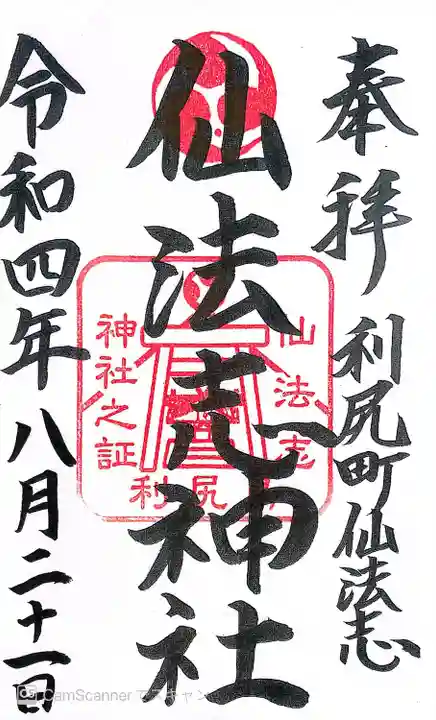 奉拝
利尻町仙法志
仙法志神社
令和四年八月二十一日
仙法志
神社之証
利尻
CamScanner でスキャン